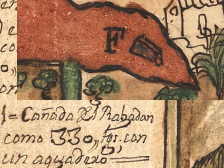 F
1= Cañada del Rabadan
como 330, fs. con
un aguadero